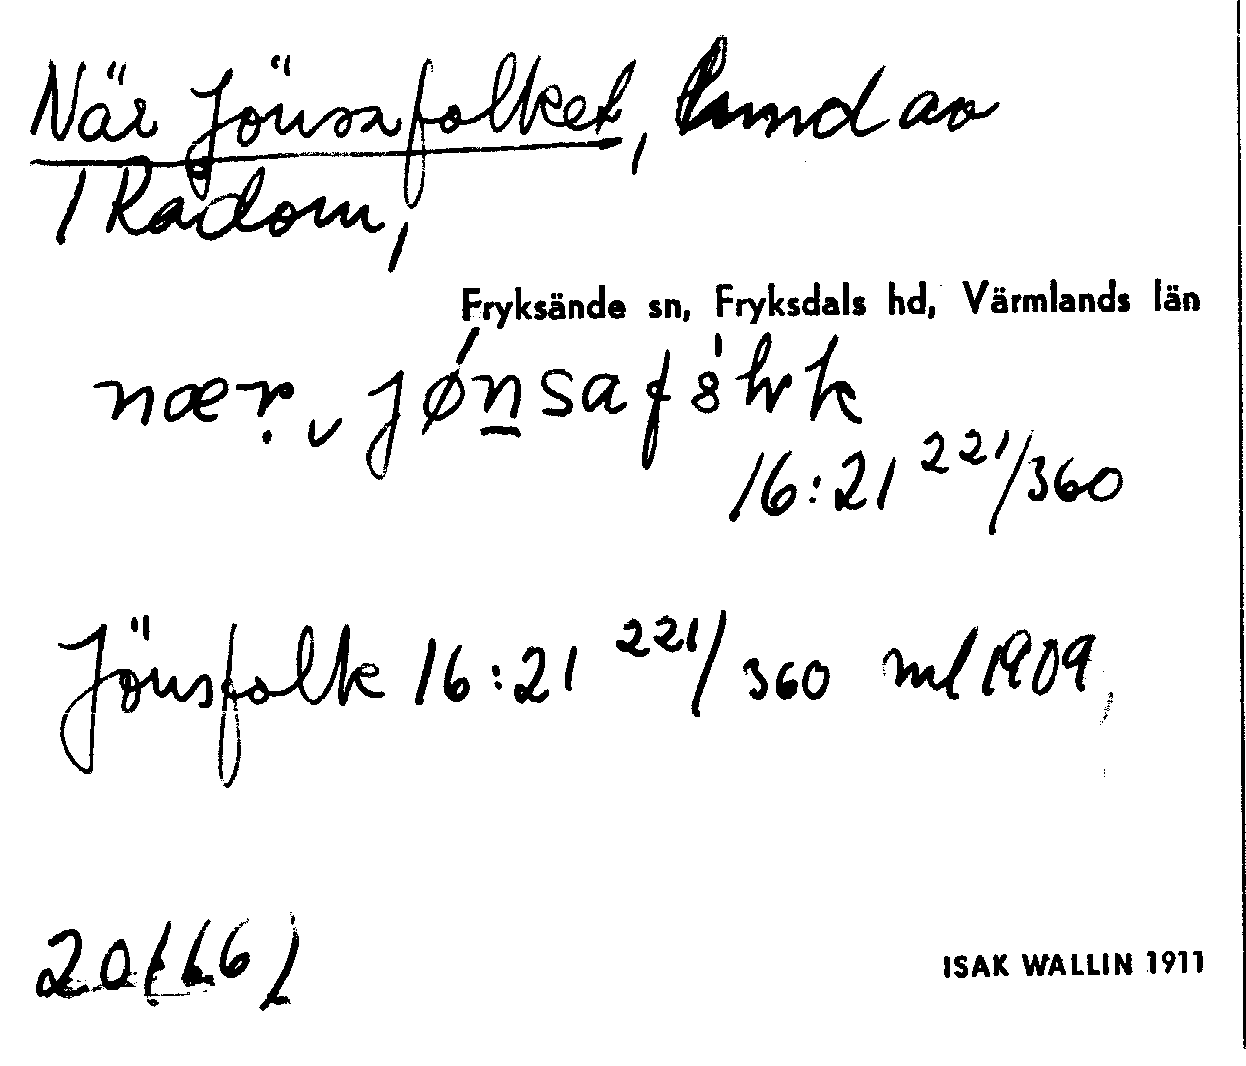 När Jönsafolket, kund av
1 Radom,
Fryksände sn, Fryksdals hd, Värmlands län
16:21 221/360
Jönsfolk 16:21 221/360 ml 1909,
ISAK WALLIN 1911